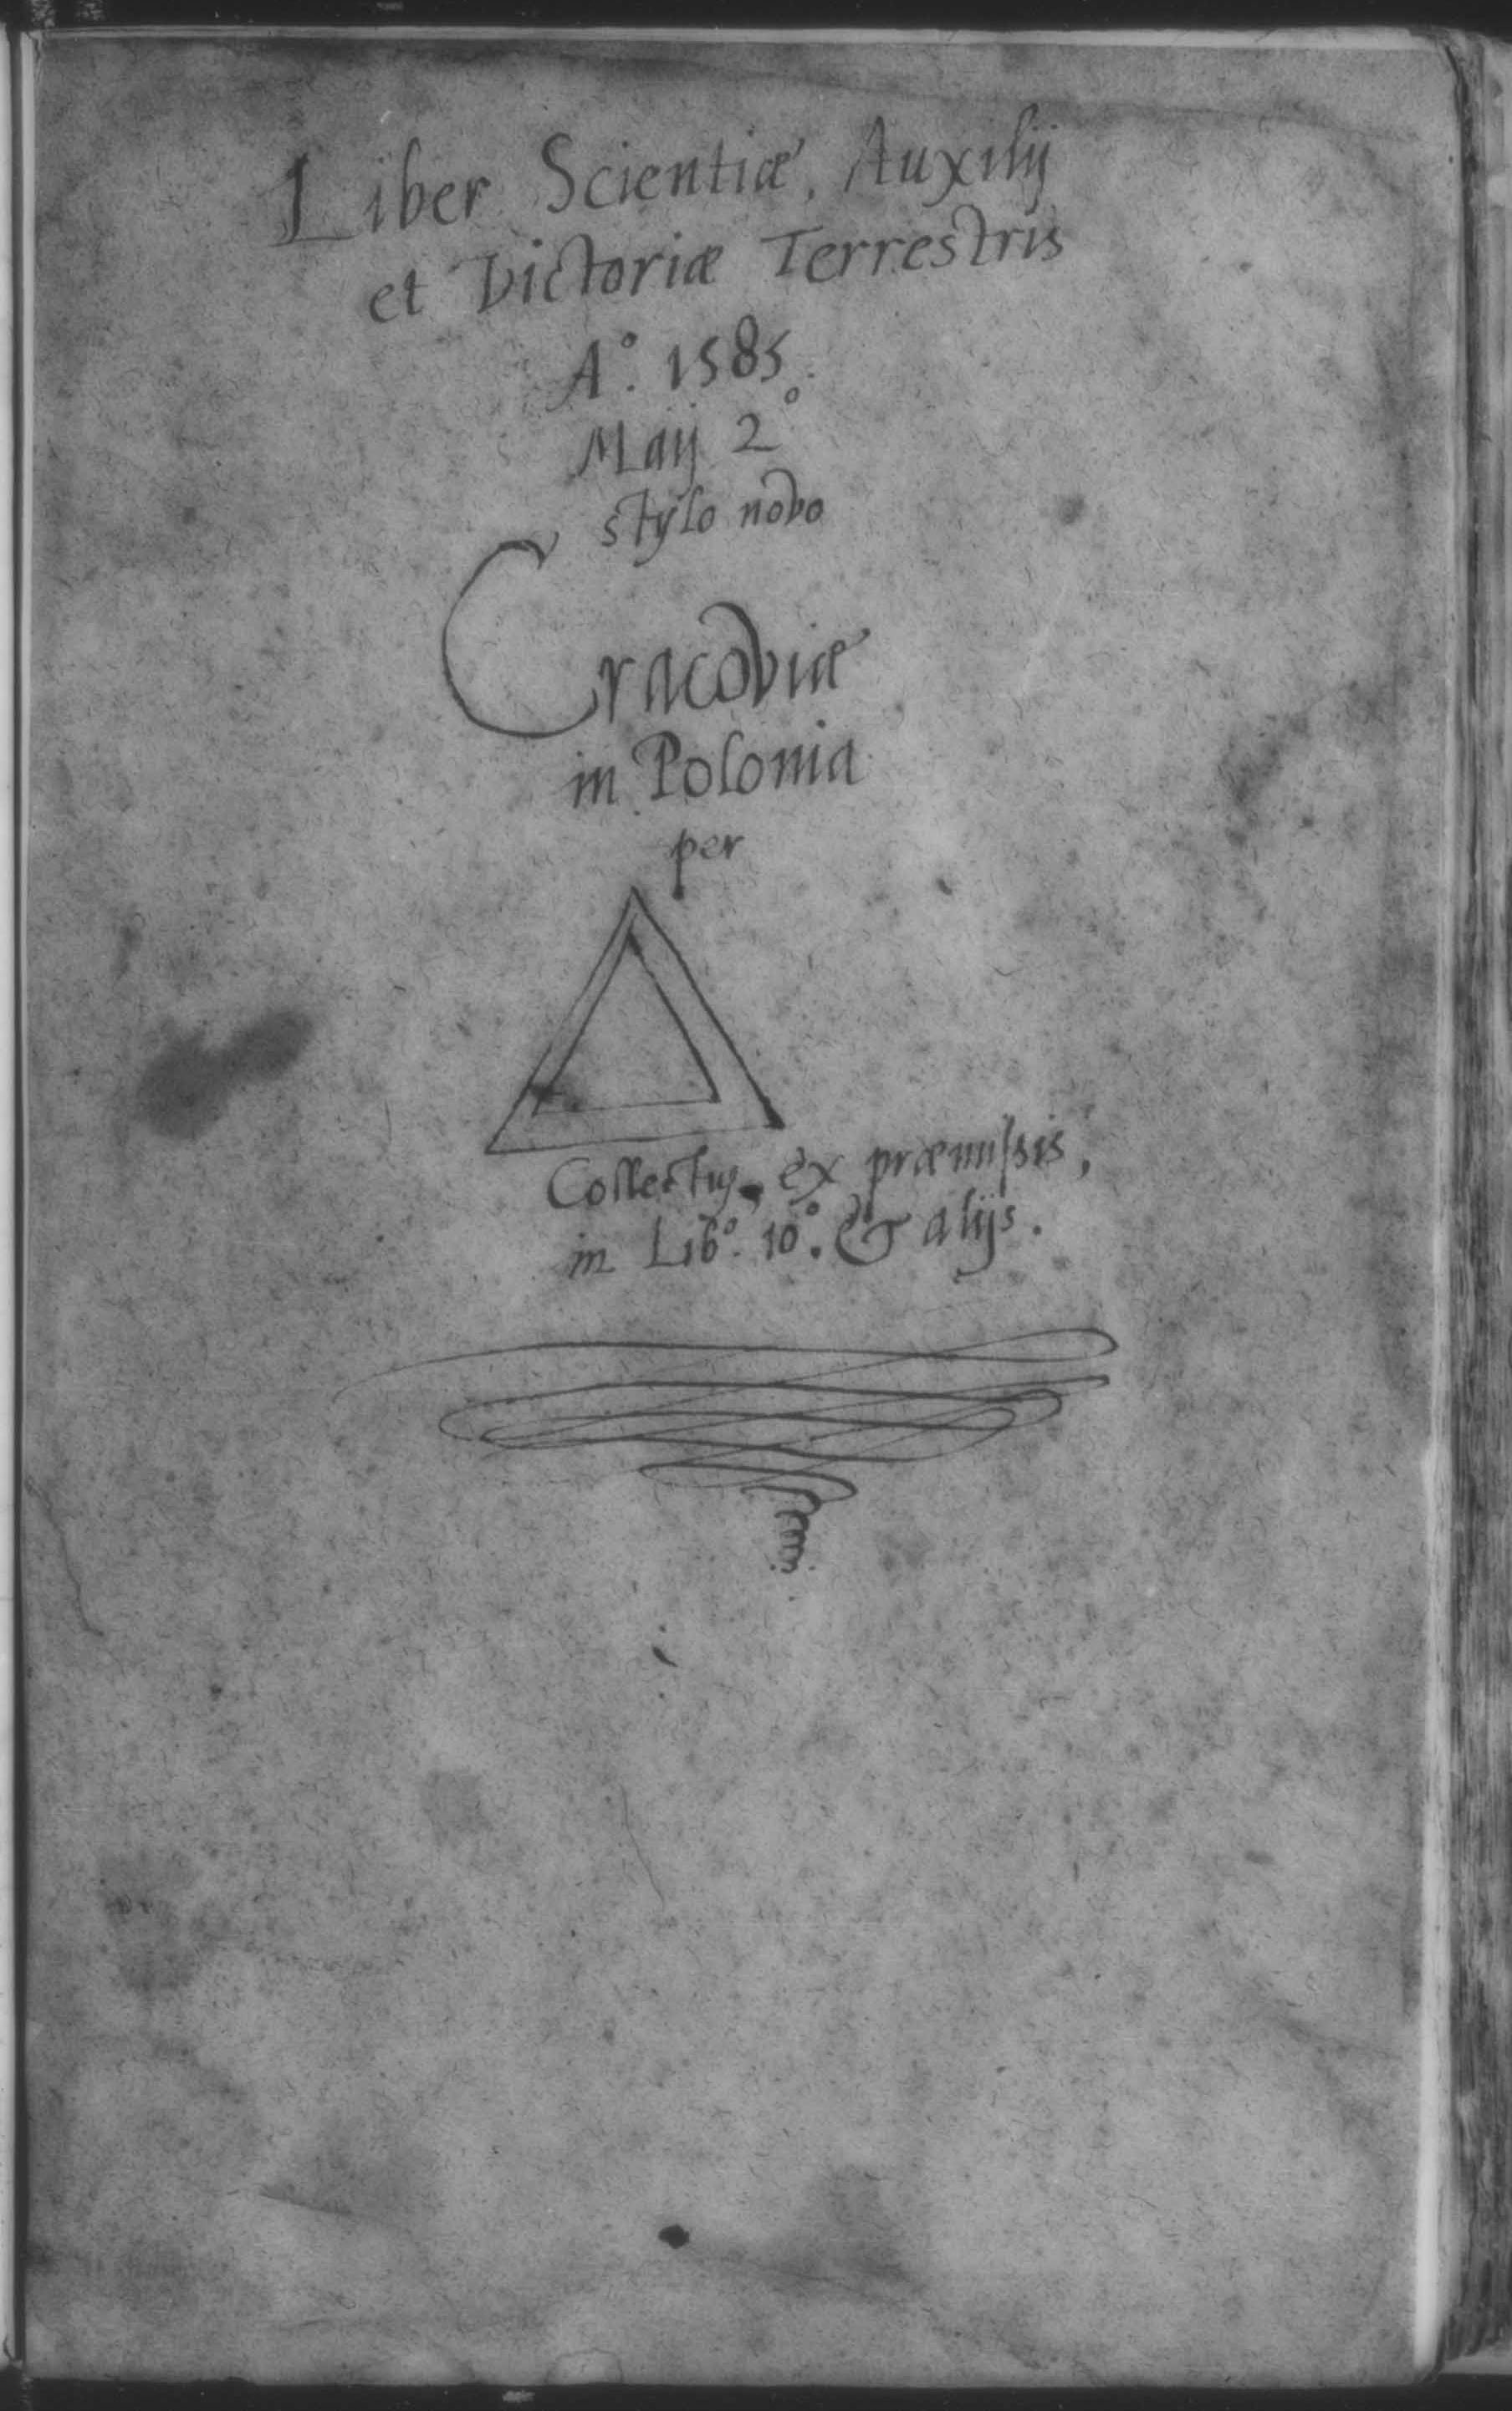 Liber Scientiæ, Auxilij
et Victoriæ Terrestris
A°. 1585.
Maij 2°
stylo novo
Cracoviæ
in Polonia
per
Collectus, ex præmissis,
in Lib°. 10°. & alijs.